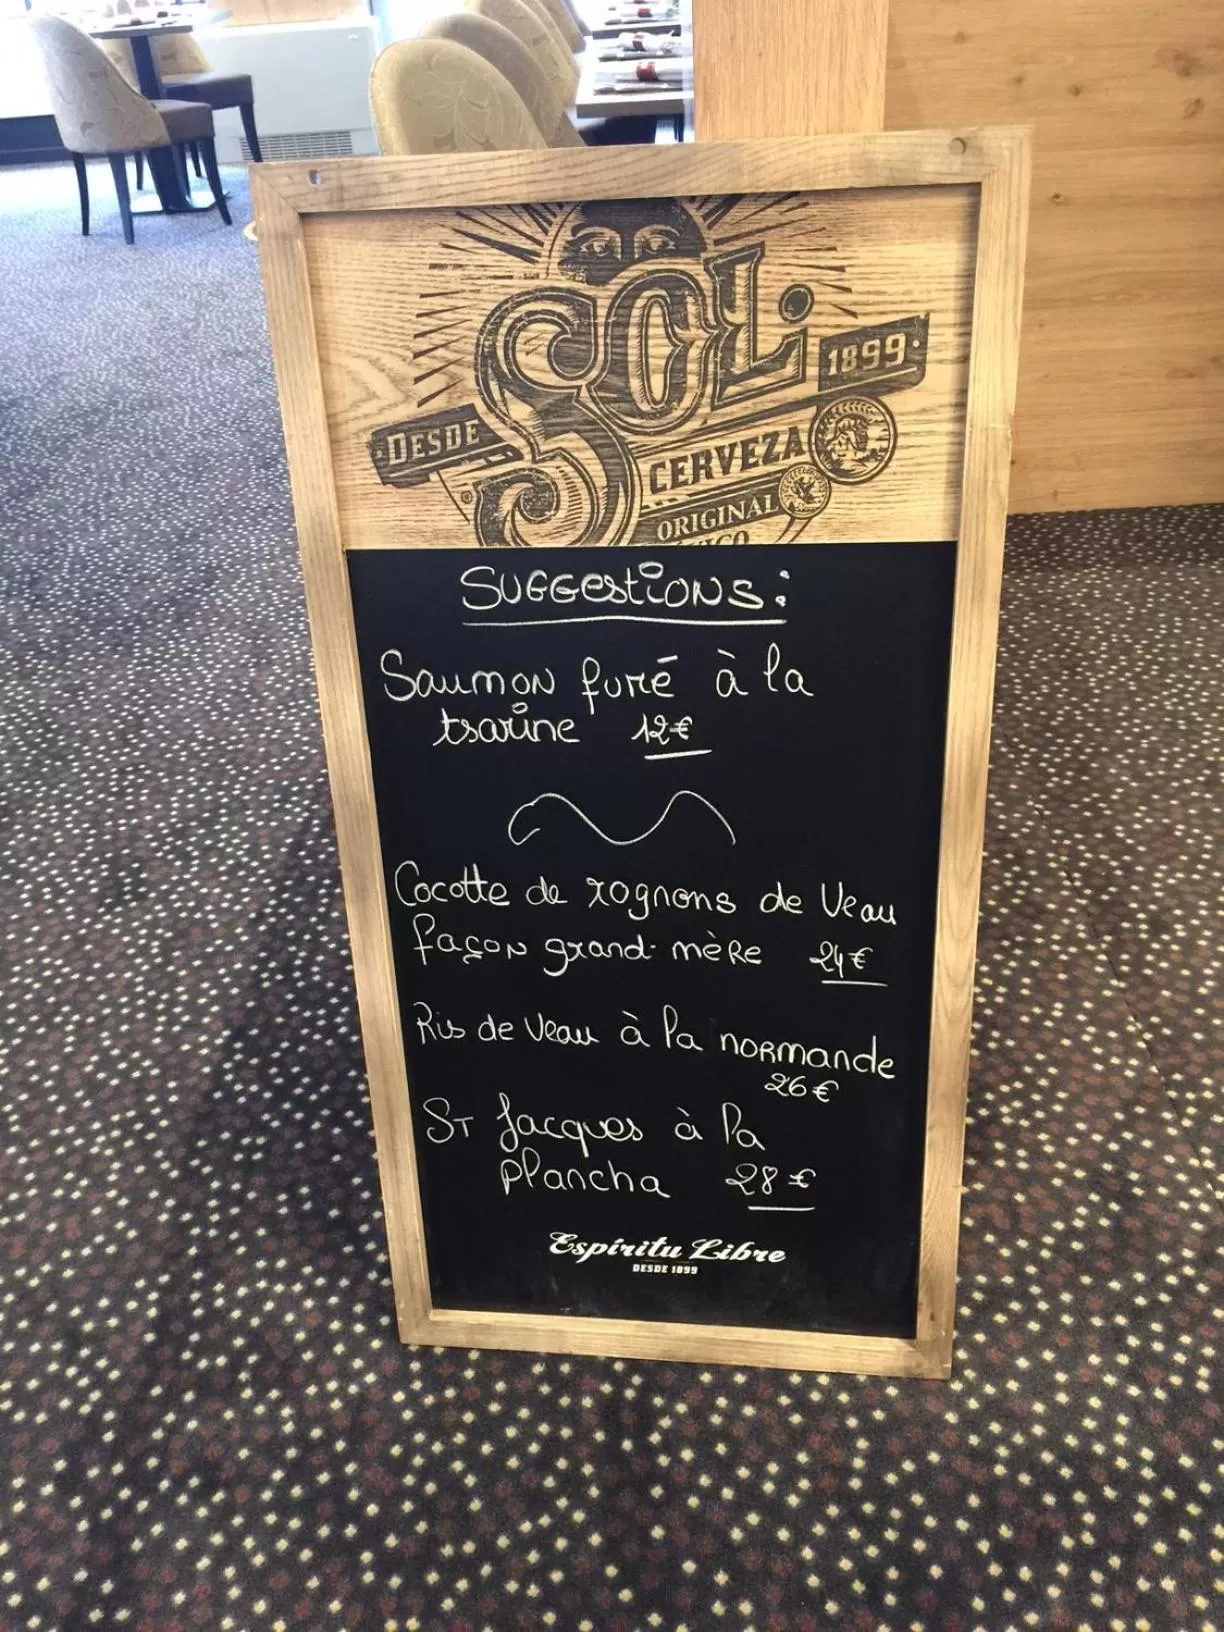 SOL.
DESDE
1899
CERVEZA
ORIGINAL
SUGGESTIONS:
Saumon fumé à la
tsarine 12€
Cocotte de rognons de Veau
façon grand-mère 24€
Ris de Veau à la normande
26€
ST Jacques à la
plancha 28€
Espíritu Libre
DESDE 1899